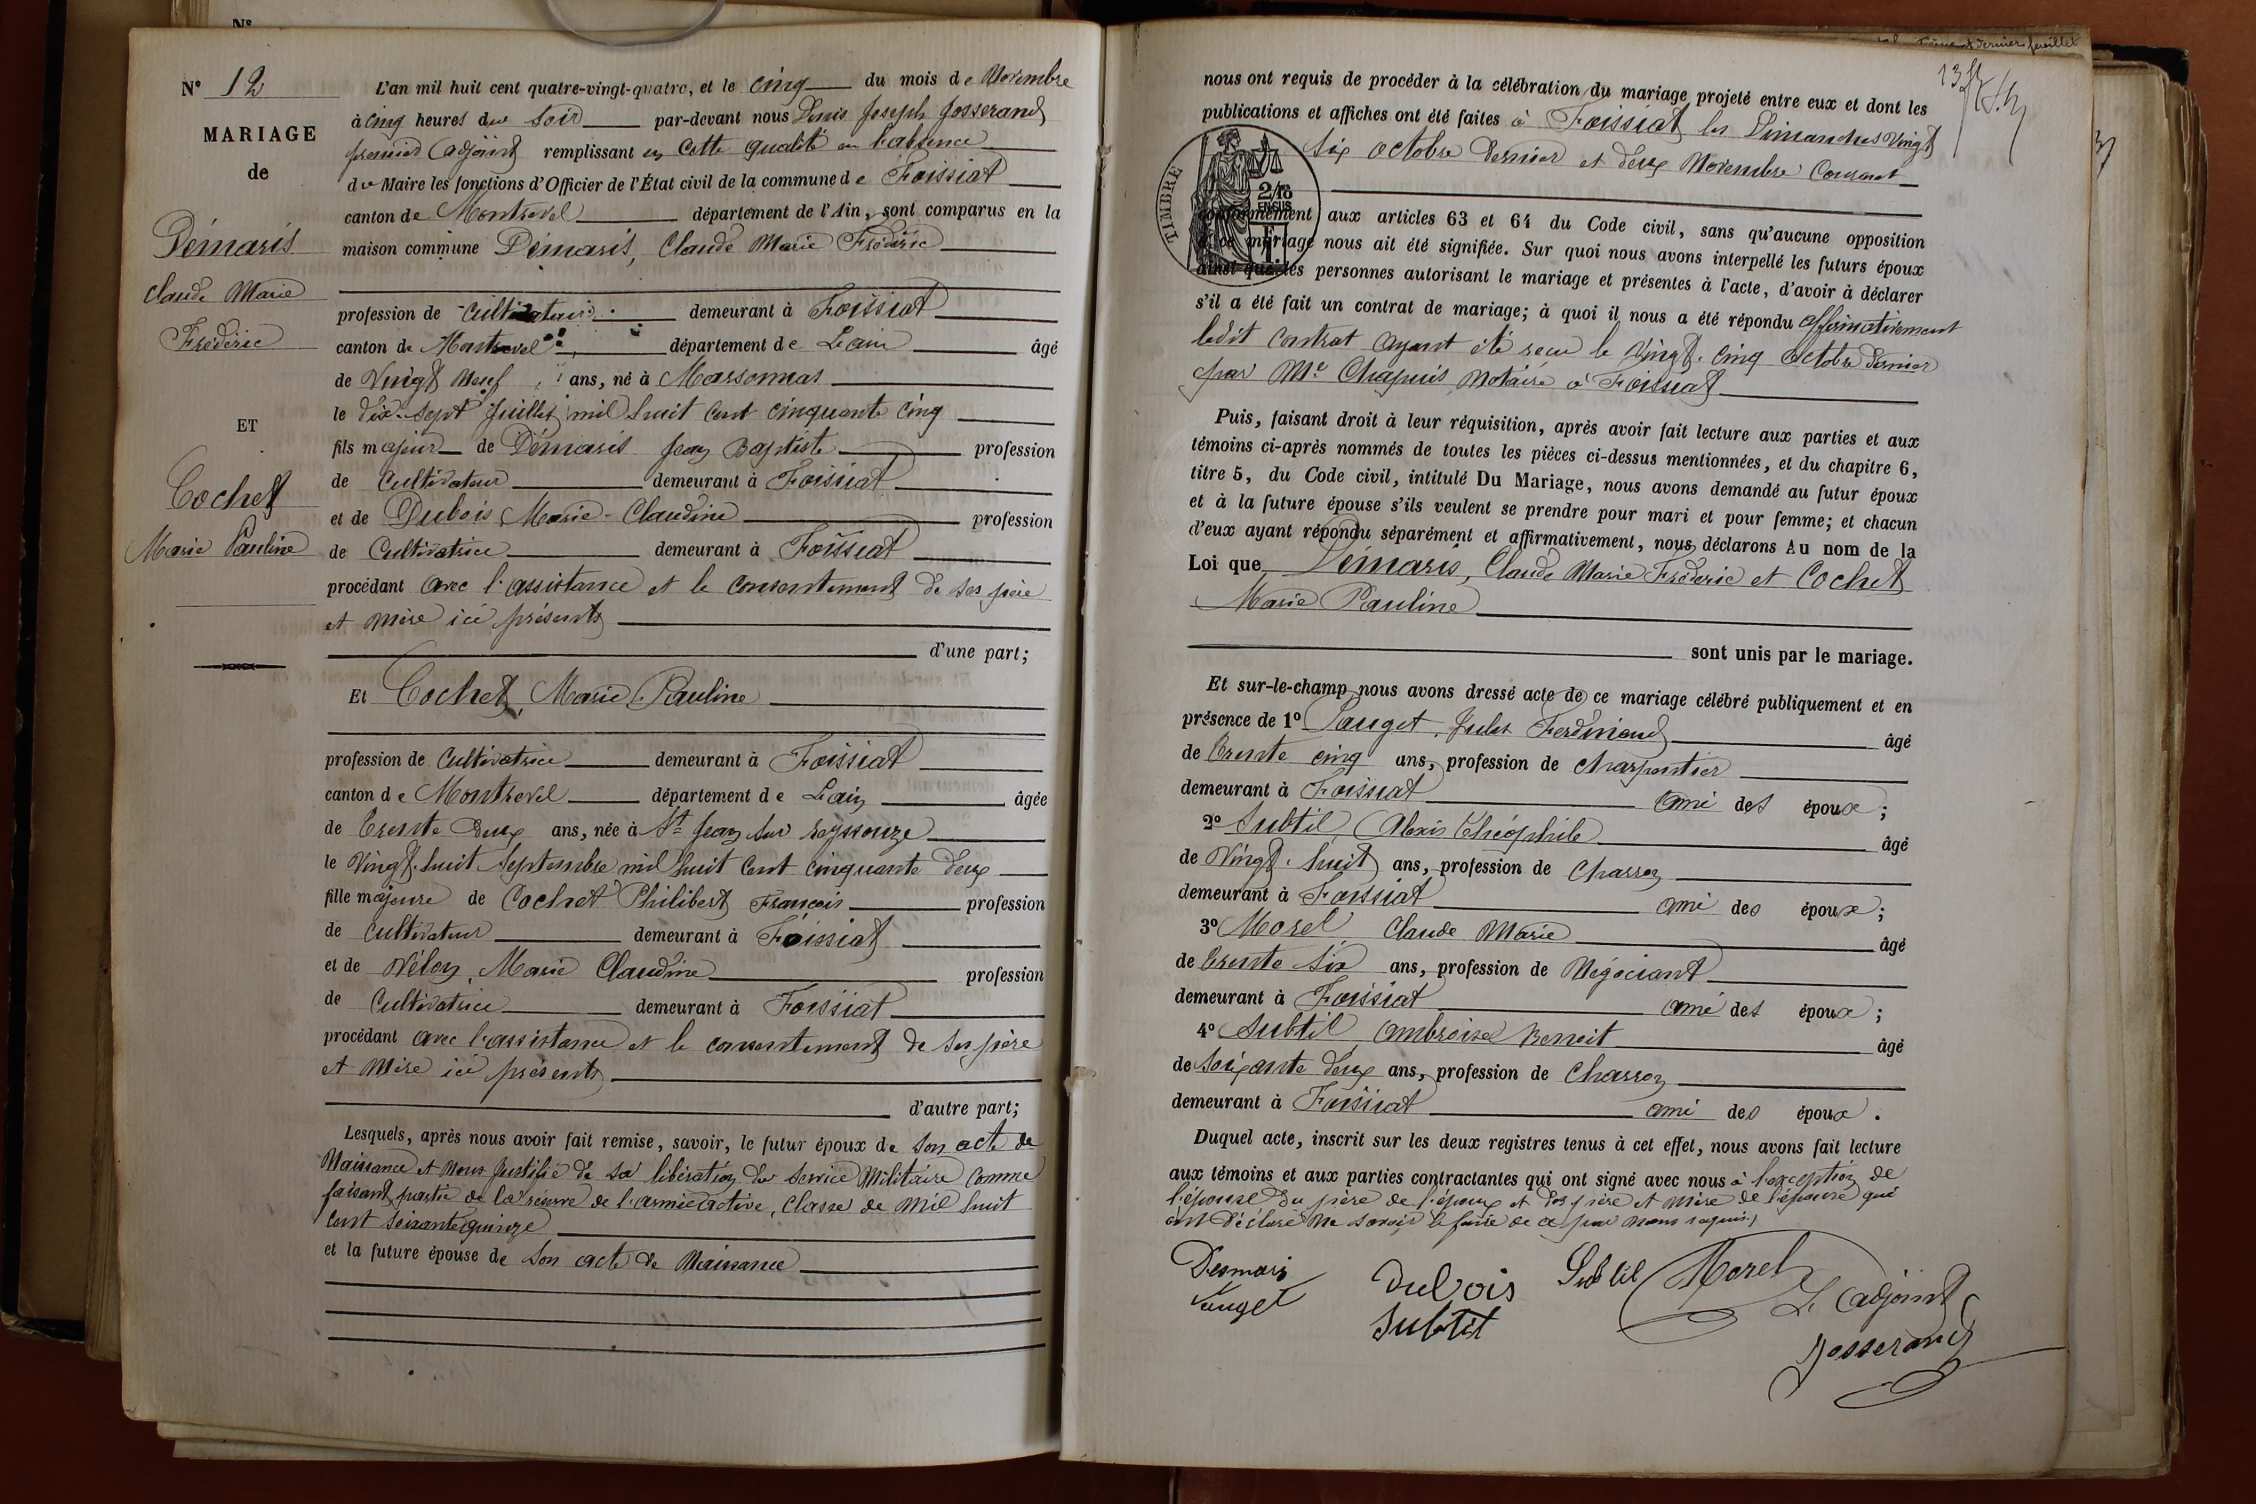 Nº
Nº 12
MARIAGE
de
Démaris
Claude Marie
Frédéric
ET
Cochet
Marie Pauline
L'an mil huit cent quatre-vingt-quatre, et le cinq du mois de Novembre
à cinq heures du soir par-devant nous Denis Joseph Josserand
premier adjoint remplissant en cette qualité en l'absence
du Maire les fonctions d'Officier de l'État civil de la commune de Foissiat
canton de Montrevel département de l'Ain, sont comparus en la
maison commune Démaris, Claude Marie Frédéric
profession de cultivateur demeurant à Foissiat
canton de Montrevel département de Lain âgé
de Vingt neuf ans, né à Marsonnas
le dix-sept Juillet mil huit cent cinquante cinq
fils majeur de Démaris Jean Baptiste profession
de cultivateur demeurant à Foissiat
et de Dubois, Marie-Claudine profession
de Cultivatrice demeurant à Foissiat
procédant avec l'assistance et le consentement de ses père
et mère ici présents
d'une part;
Et Cochet, Marie Pauline
profession de Cultivatrice demeurant à Foissiat
canton de Montrevel département de Lain âgée
de Trente deux ans, née à St Jean sur Reyssouze
le Vingt-huit Septembre mil huit cent cinquante deux
fille majeure de Cochet Philibert François profession
de cultivateur demeurant à Foissiat
et de Vélon, Marie Claudine profession
de Cultivatrice demeurant à Foissiat
procédant avec l'assistance et le consentement de ses père
et Mère ici présents
d'autre part;
Lesquels, après nous avoir fait remise, savoir, le futur époux de son acte de
Naissance et nous justifié de sa libération du service Militaire comme
faisant partie de la réserve de l'armée active, classe de Mil huit
cent soixante quinze
et la future épouse de son acte de Naissance
nous ont requis de procéder à la célébration du mariage projeté entre eux et dont les
publications et affiches ont été faites à Foissiat les Dimanches Vingt
six octobre dernier et deux Novembre Courant
TIMBRE
2/10
EN SUS
1 F.
conformément aux articles 63 et 64 du Code civil, sans qu'aucune opposition
à ce mariage nous ait été signifiée. Sur quoi nous avons interpellé les futurs époux
ainsi que les personnes autorisant le mariage et présentes à l'acte, d'avoir à déclarer
s'il a été fait un contrat de mariage; à quoi il nous a été répondu affirmativement
ledit contrat ayant été reçu le vingt-cinq octobre dernier
par Me Chapuis Notaire à Foissiat
Puis, faisant droit à leur réquisition, après avoir fait lecture aux parties et aux
témoins ci-après nommés de toutes les pièces ci-dessus mentionnées, et du chapitre 6,
titre 5, du Code civil, intitulé Du Mariage, nous avons demandé au futur époux
et à la future épouse s'ils veulent se prendre pour mari et pour femme; et chacun
d'eux ayant répondu séparément et affirmativement, nous déclarons Au nom de la
Loi que Démaris, Claude Marie Frédéric et Cochet
Marie Pauline
sont unis par le mariage.
Et sur-le-champ nous avons dressé acte de ce mariage célébré publiquement et en
présence de 1º Pauget, Jules Ferdinand âgé
de Trente cinq ans, profession de charpentier
demeurant à Foissiat ami des époux;
2º Subtil, Alexis Théophile âgé
de Vingt-huit ans, profession de Charron
demeurant à Foissiat ami des époux;
3º Morel Claude Marie âgé
de Trente Six ans, profession de Négociant
demeurant à Foissiat ami des époux;
4º Subtil ambroise Benoit âgé
de Soixante deux ans, profession de Charron
demeurant à Foissiat ami des époux.
Duquel acte, inscrit sur les deux registres tenus à cet effet, nous avons fait lecture
aux témoins et aux parties contractantes qui ont signé avec nous à l'exception de
l'épouse du père de l'époux et des père et mère de l'épouse qui
ont déclaré ne savoir le faire de ce par nous requis
Desmaris Dubois Subtil Morel
Pauget Subtil L'adjoint
Josserand